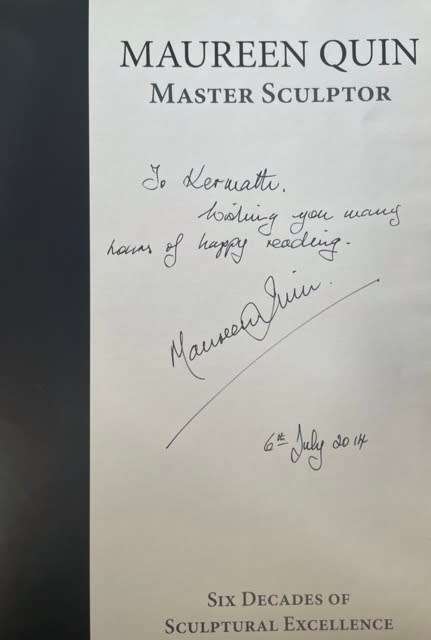 MAUREEN QUIN
MASTER SCULPTOR
To
Wishing you many
hours of happy reading.
Maureen Quin.
6th July 2014
SIX DECADES OF
SCULPTURAL EXCELLENCE